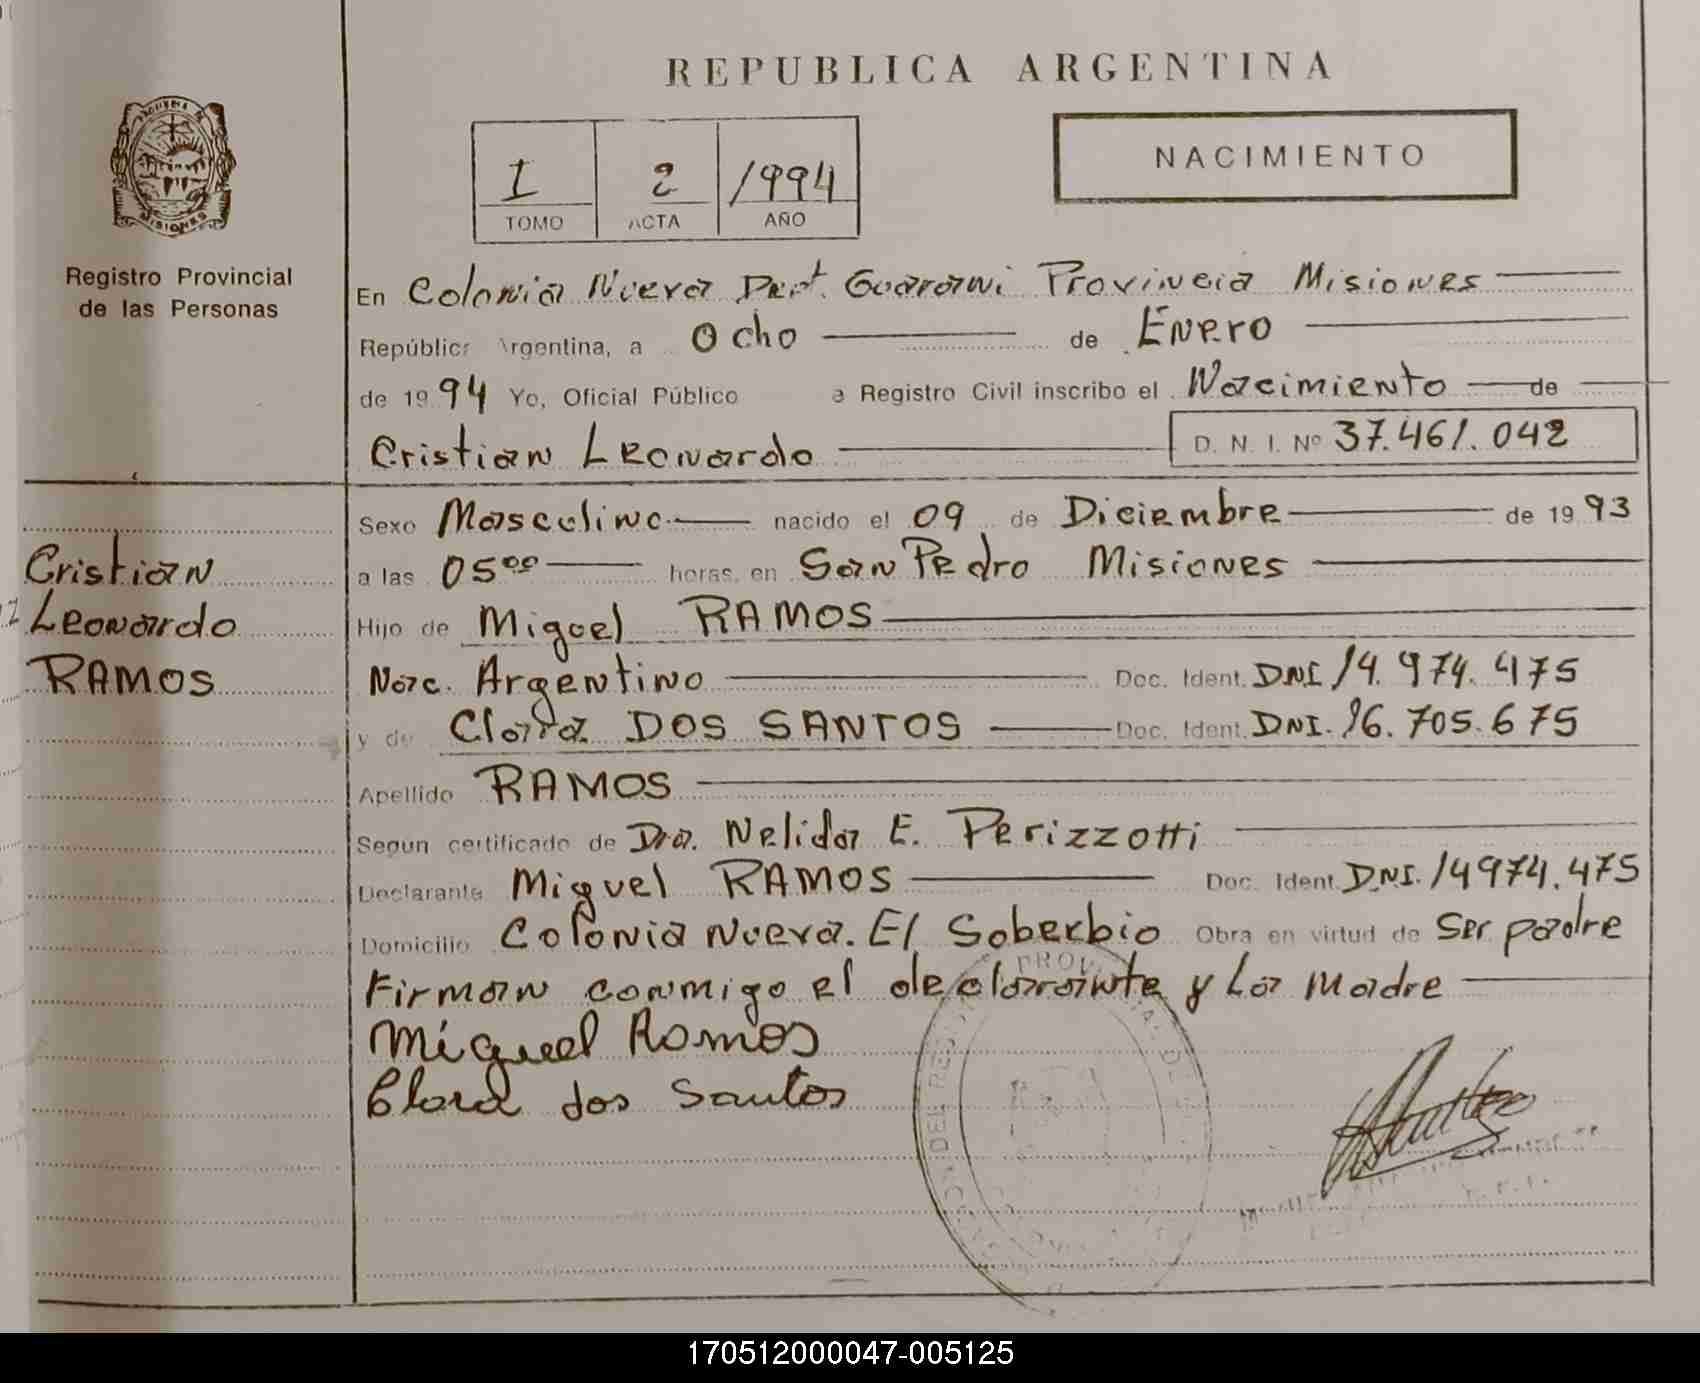 REPUBLICA ARGENTINA
NACIMIENTO
I 2 1994
TOMO ACTA AÑO
Registro Provincial
de las Personas
En Colonia Nueva Dept. Guarani Provincia Misiones
República Argentina, a Ocho de Enero
de 1994 Yo, Oficial Público a Registro Civil inscribo el Nacimiento de
Cristian Leonardo D. N. I. Nº 37.461.042
Sexo Masculino nacido el 09 de Diciembre de 1993
a las 05⁰⁰ horas en San Pedro Misiones
Hijo de Miguel RAMOS
Nac. Argentino Doc. Ident. DNI 14.974.475
y de Clara DOS SANTOS Doc. Ident. DNI. 16.705.675
Apellido RAMOS
Según certificado de Dra. Nelida E. Perizzotti
Declarante Miguel RAMOS Doc. Ident. D.N.I. 14974.475
Domicilio Colonia Nueva. El Soberbio Obra en virtud de Ser padre
Firman conmigo el declarante y La Madre
Miguel Ramos
Clara dos Santos
Cristian
Leonardo
RAMOS
170512000047-005125